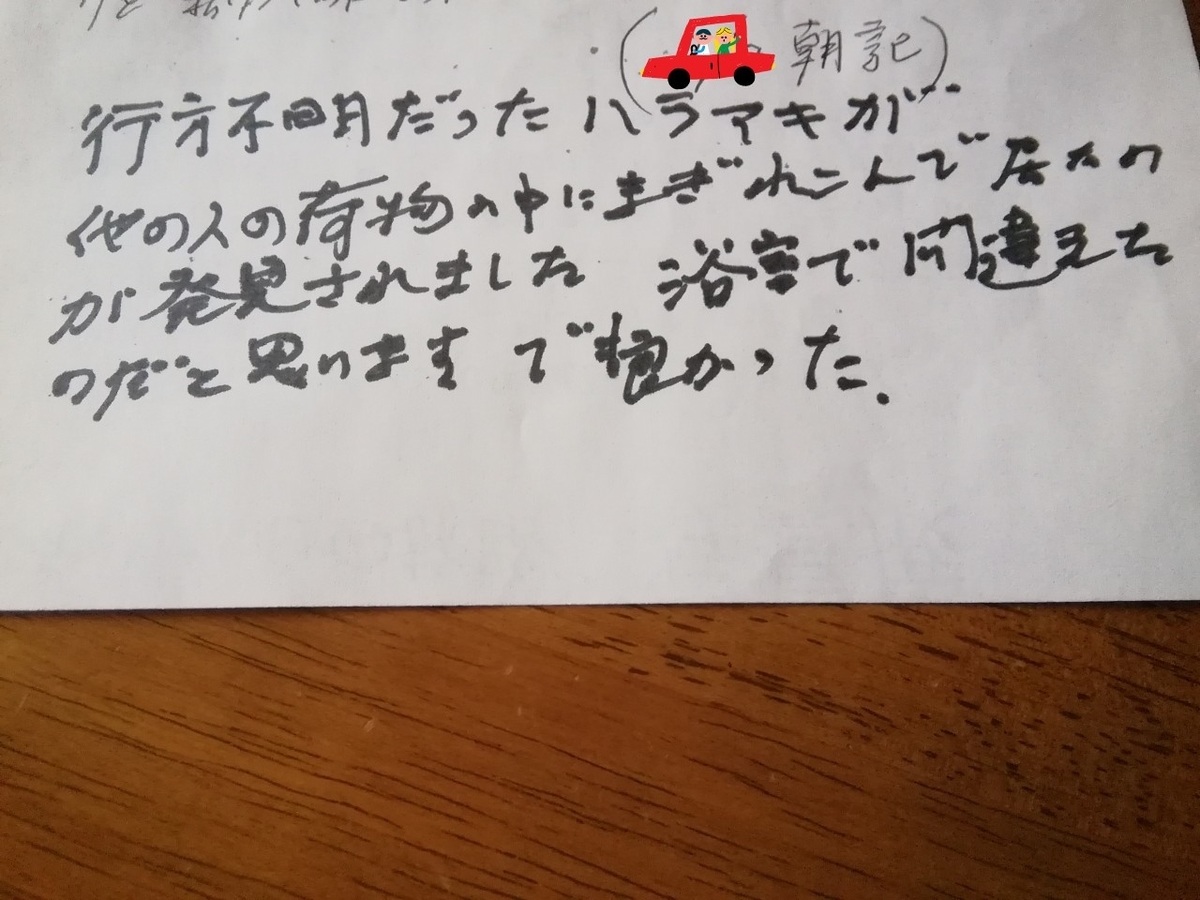 朝記)
行方不明だったハラマキが
他の人の荷物の中にまぎれこんで居たの
が発見されました 浴室で間違えた
のだと思います で良かった.